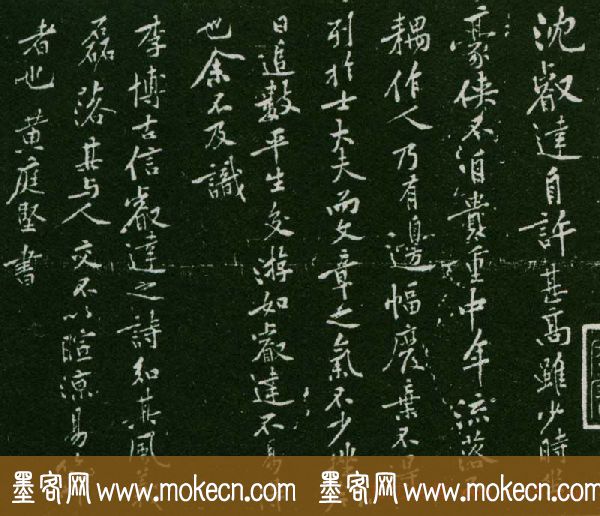 沈叡達自許甚高雖少時
豪俠不自貴重中年流落不
耦作人乃有邊幅廢棄不得
列於士大夫而文章之氣不少
日追數平生交游如叡達不易得
也余不及識
李博古信叡達之詩知其風義
磊落其與人交不以暄涼易
者也黄庭堅書
墨客网 www.mokecn.com 墨客网 www.mokecn.com